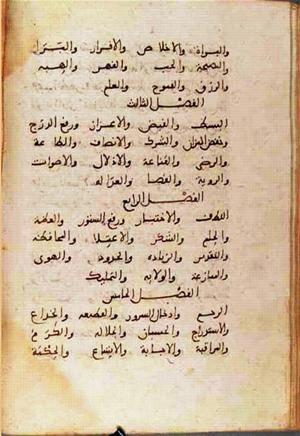 والبراة والاخلاص والاقرار والتبرى
والصحة والحب والقهر والهيبة
والرزق والفتوح والعلم
الفصل الثالث
البسط والقبض والاعزاز ورفع الدرج
وخفض الميزان والشرك والانصاف والطاعة
والرضى والقناعة والاذلال والاصوات
والروية والقضا والعزلة
الفصل الرابع
اللطف والاختبار ورفع الستور والعظمة
والحلم والشكر والاعتلا والمحافظة
والتقدس والزياده والحدود والهوى
والمنازعة والولايه والتمليك
الفصل الخامس
الرجع وادخال السرور والقطيعه والخداع
والاستدراج والحسبان والجلاله والكرم
والمراقبة والاجابة والاتساع والحكمة